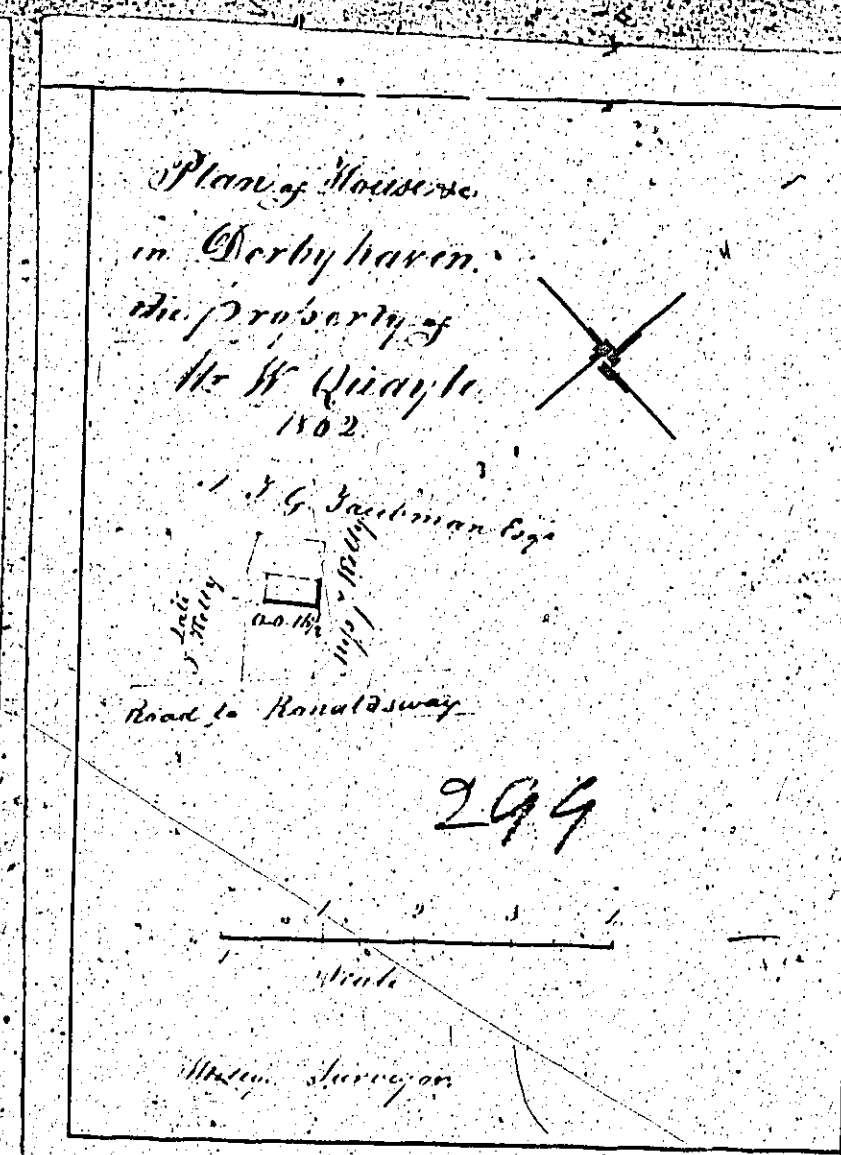 Plan of House &c
in Derbyhaven.
the property of
Mr W Quayle.
1862.
J G Taubman Esqr
Late
J Kelly
0.0.16½
Miss J Kelly
Road to Ronaldsway
2GG
1 2 3
Scale
Surveyor